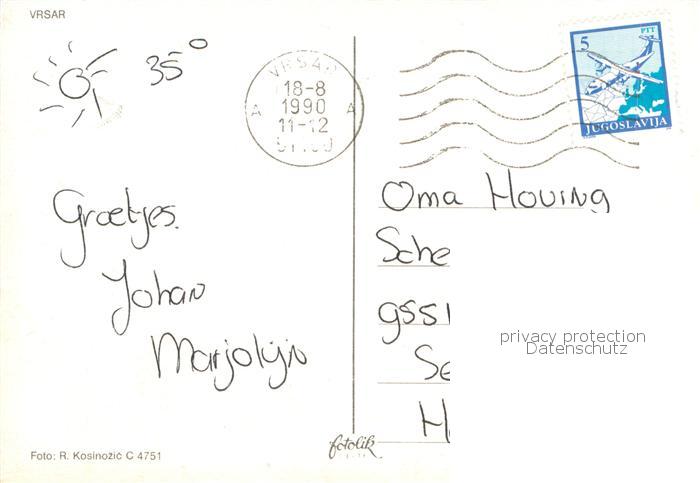 VRSAR
35°
VRSAR
18-8
1990
A A
11-12
5
PTT
JUGOSLAVIJA
Groetjes.
Johan
Marjolijn
Oma Houing
Sche
9551
Se
H
privacy protection
Datenschutz
Foto: R. Kosinožić C 4751
fotolik